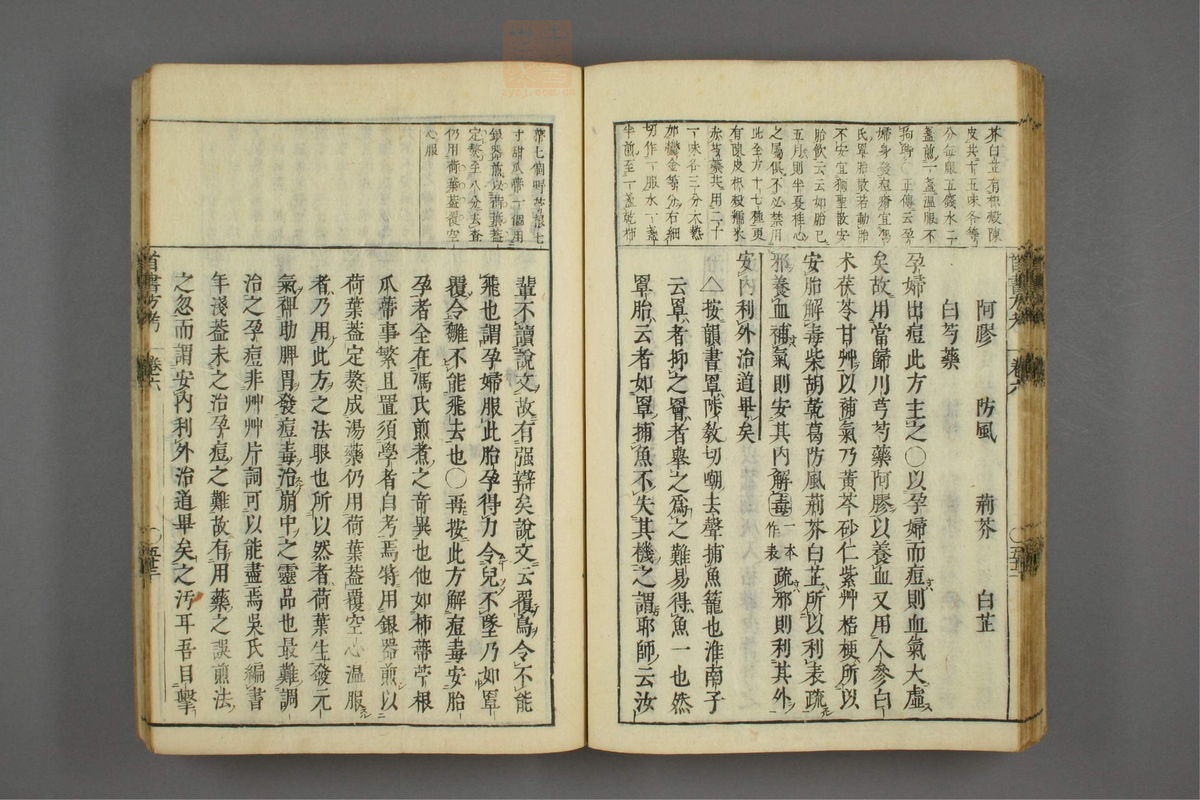 芥白芷有枳殼陳
皮共十五味各等
分每服五錢水二
盞煎一盞溫服不
拘時○正傳云孕
婦身發痘瘡宜罩
氏罩胎散若動胎
不安宜獨聖散安
胎飲云云如胎已
五月則半夏桂心
之屬俱不必禁用
此全方十七種更
有陳皮枳殼糯米
赤芍藥共用二十
一味各三分木熱
加鬱金等分右細
切作一服水一盞
半煎至一盞乾柿
阿膠 防風 荊芥 白芷
白芍藥
孕婦出痘此方主之○以孕婦而痘則血氣大虛
矣故用當歸川芎芍藥阿膠以養血又用人參白
朮茯苓甘艸以補氣乃黃芩砂仁紫艸桔梗所以
安胎解毒柴胡乾葛防風荊芥白芷所以利表疏
邪養血補氣則安其內解毒一本作表疏邪則利其外
安內利外治道畢矣
按韻書罩陟敎切嘲去聲捕魚籠也淮南子
云罩者抑之罾者舉之爲之難易得魚一也然
罩胎云者如罩捕魚不失其機之謂耶師云汝
首書方考 卷六 ○五十二
蒂七個野苧根七
寸甜瓜蒂一個用
銀器煎以荷葉蓋
定熬至八分去柤
仍用荷葉蓋覆空
心服
輩不讀說文故有强辯矣說文云覆鳥令不能
飛也謂孕婦服此胎孕得力令兒不墜乃如罩
覆令雛不能飛去也○再按此方解痘毒安胎
孕者全在馮氏煎煮之奇異也他如柿蒂苧根
瓜蒂事繁且置須學者自考焉特用銀器煎以
荷葉蓋定熬成湯藥仍用荷葉蓋覆空心溫服
者乃用此方之法眼也所以然者荷葉生發元
氣裨助脾胃發痘毒治崩中之靈品也最難調
治之孕痘非艸艸片詞可以能盡焉吳氏編書
年淺蓋未之治孕痘之難故有用藥之誤煎法
之忽而謂安內利外治道畢矣之汚耳吾目擊
首書方考 卷六